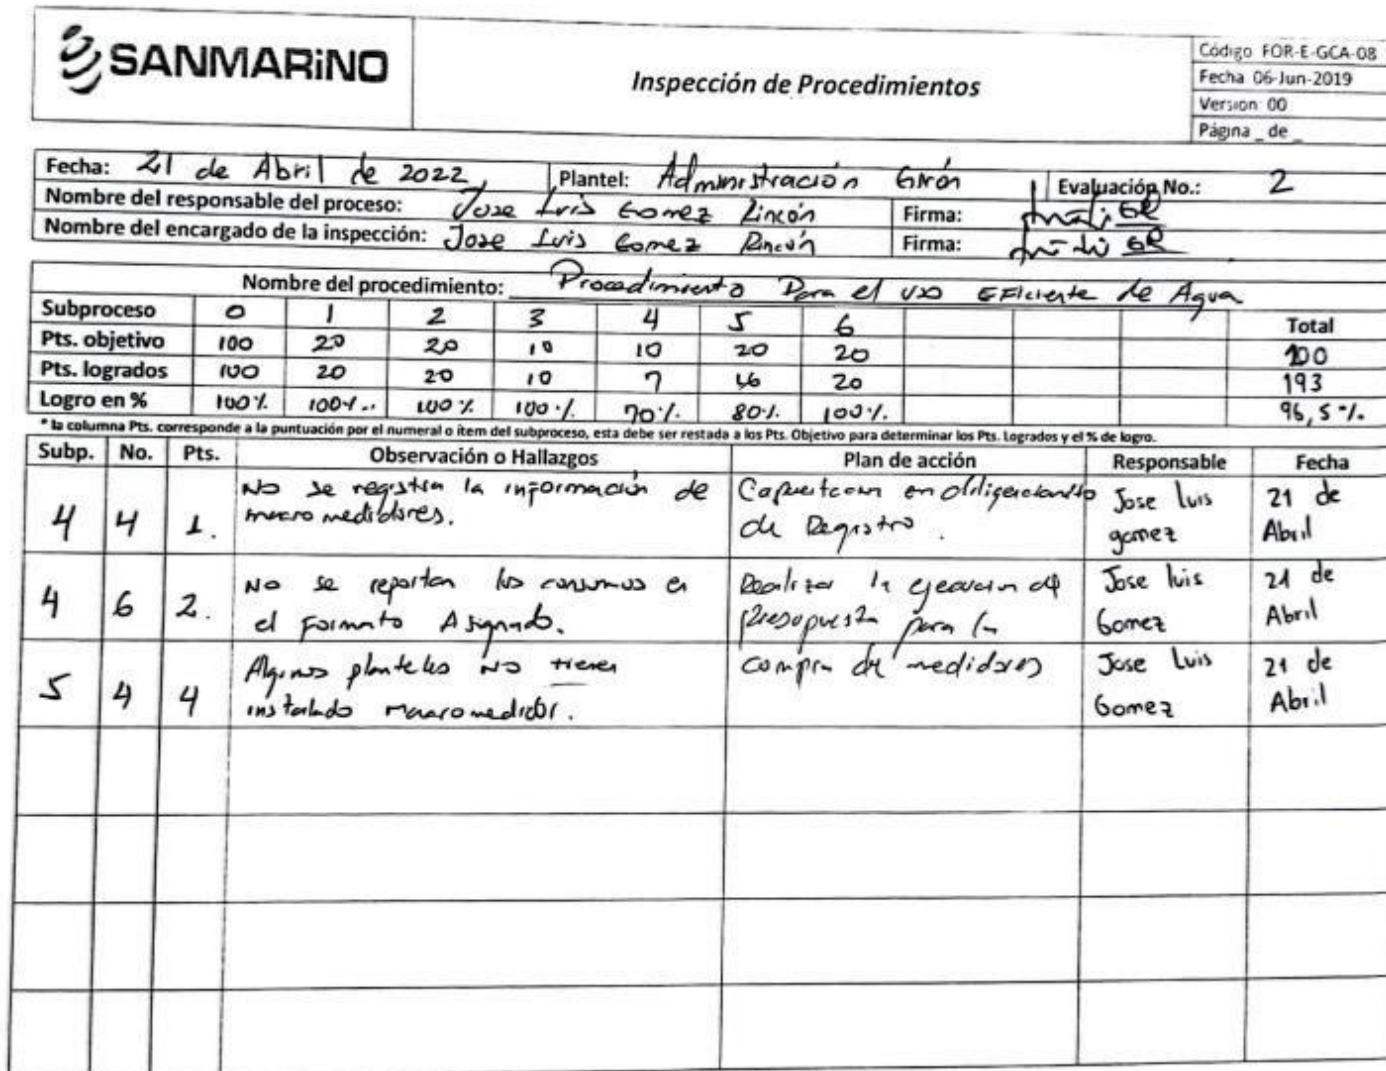 SANMARiNO
Inspección de Procedimientos
Código FOR-E-GCA-08
Fecha 06-Jun-2019
Version 00
Página _ de _
Fecha: 21 de Abril de 2022 Plantel: Administración Girón Evaluación No.: 2
Nombre del responsable del proceso: Jose Luis Gomez Rincón Firma:
Nombre del encargado de la inspección: Jose Luis Gomez Rincón Firma:
Nombre del procedimiento: Procedimiento Para el uso Eficiente de Agua
Subproceso 0 1 2 3 4 5 6 Total
Pts. objetivo 100 20 20 10 10 20 20 200
Pts. logrados 100 20 20 10 7 16 20 193
Logro en % 100% 100% 100% 100% 70% 80% 100% 96,5%
* la columna Pts. corresponde a la puntuación por el numeral o ítem del subproceso, esta debe ser restada a los Pts. Objetivo para determinar los Pts. Logrados y el % de logro.
Subp. No. Pts. Observación o Hallazgos Plan de acción Responsable Fecha
4 4 1. No se registra la información de
macromedidores.
en
de Registro.
Jose Luis
gomez
21 de
Abril
4 6 2. No se reportan los consumos en
el Formato Asignado.
Realizar la ejecución del
presupuesto para la
Jose luis
Gomez
21 de
Abril
5 4 4 Algunos planteles no tienen
instalado macromedidor.
compra de medidores
Jose Luis
Gomez
21 de
Abril